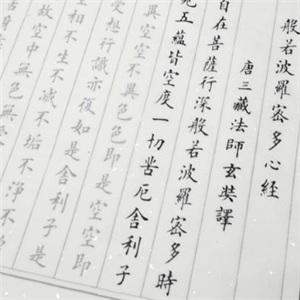 般若波羅密多心經
唐三藏法師玄奘譯
自在菩薩行深般若波羅密多時
見五蘊皆空度一切苦厄舍利子
異空空不異色色即是空空即
受想行識亦復如是舍利子是
相不生不滅不垢不淨不
故空中無色無受